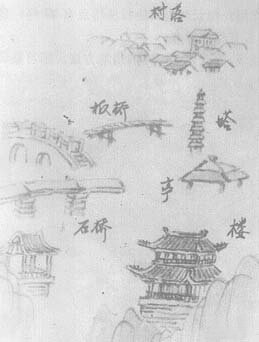 村落
板桥
塔
亭
石桥
楼